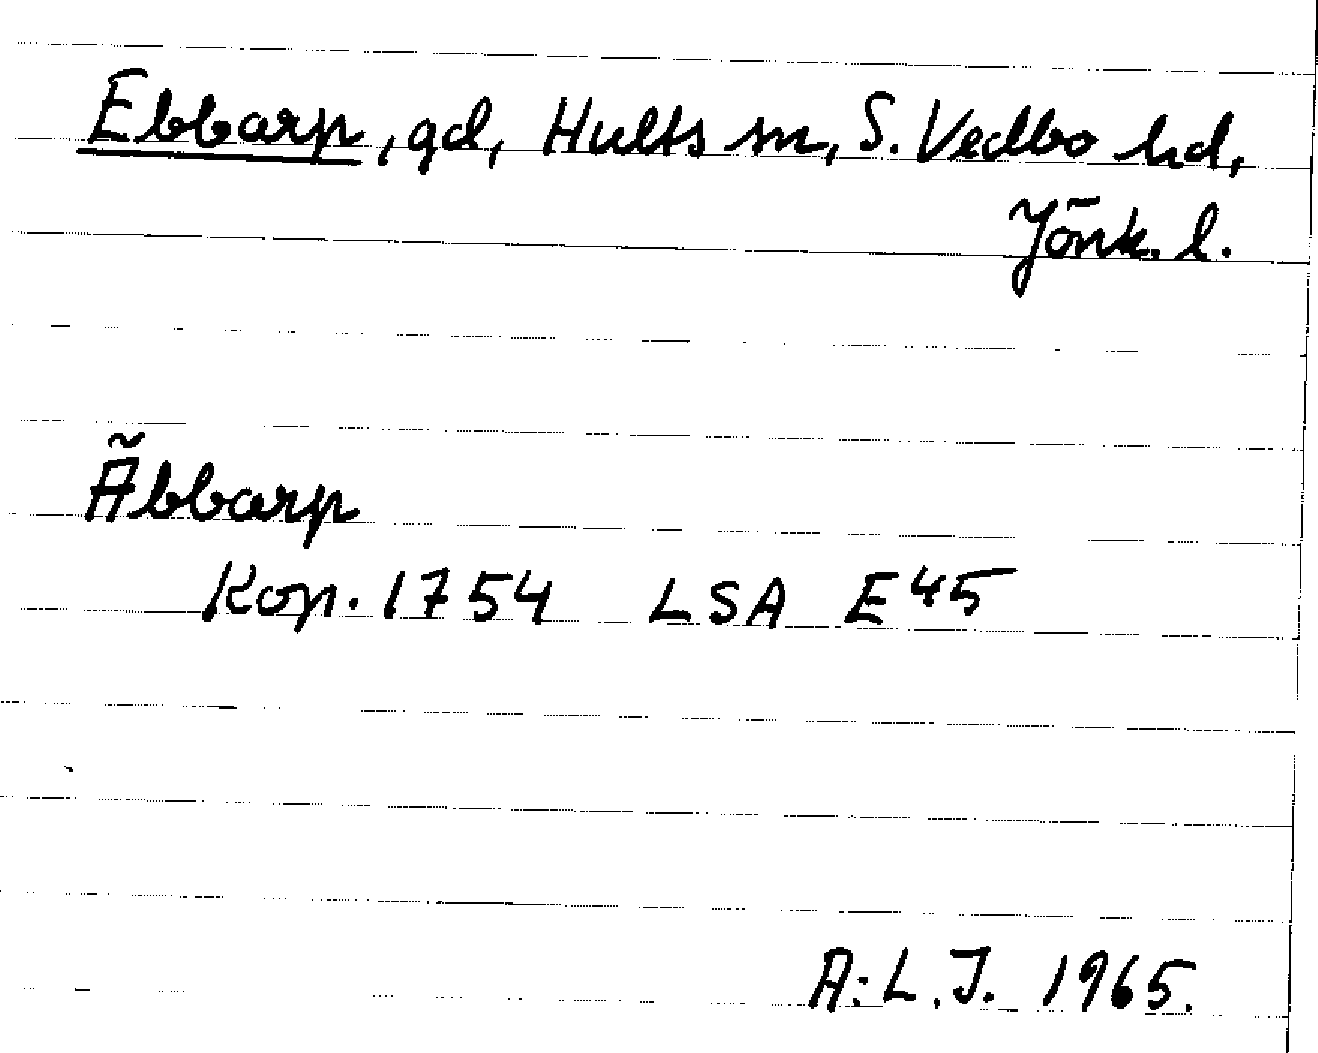 Ebbarp, gd, Hults sn, S. Vedbo hd,
Jönk. l.
Äbbarp
Kop. 1754 LSA E45
A.L.J. 1965.